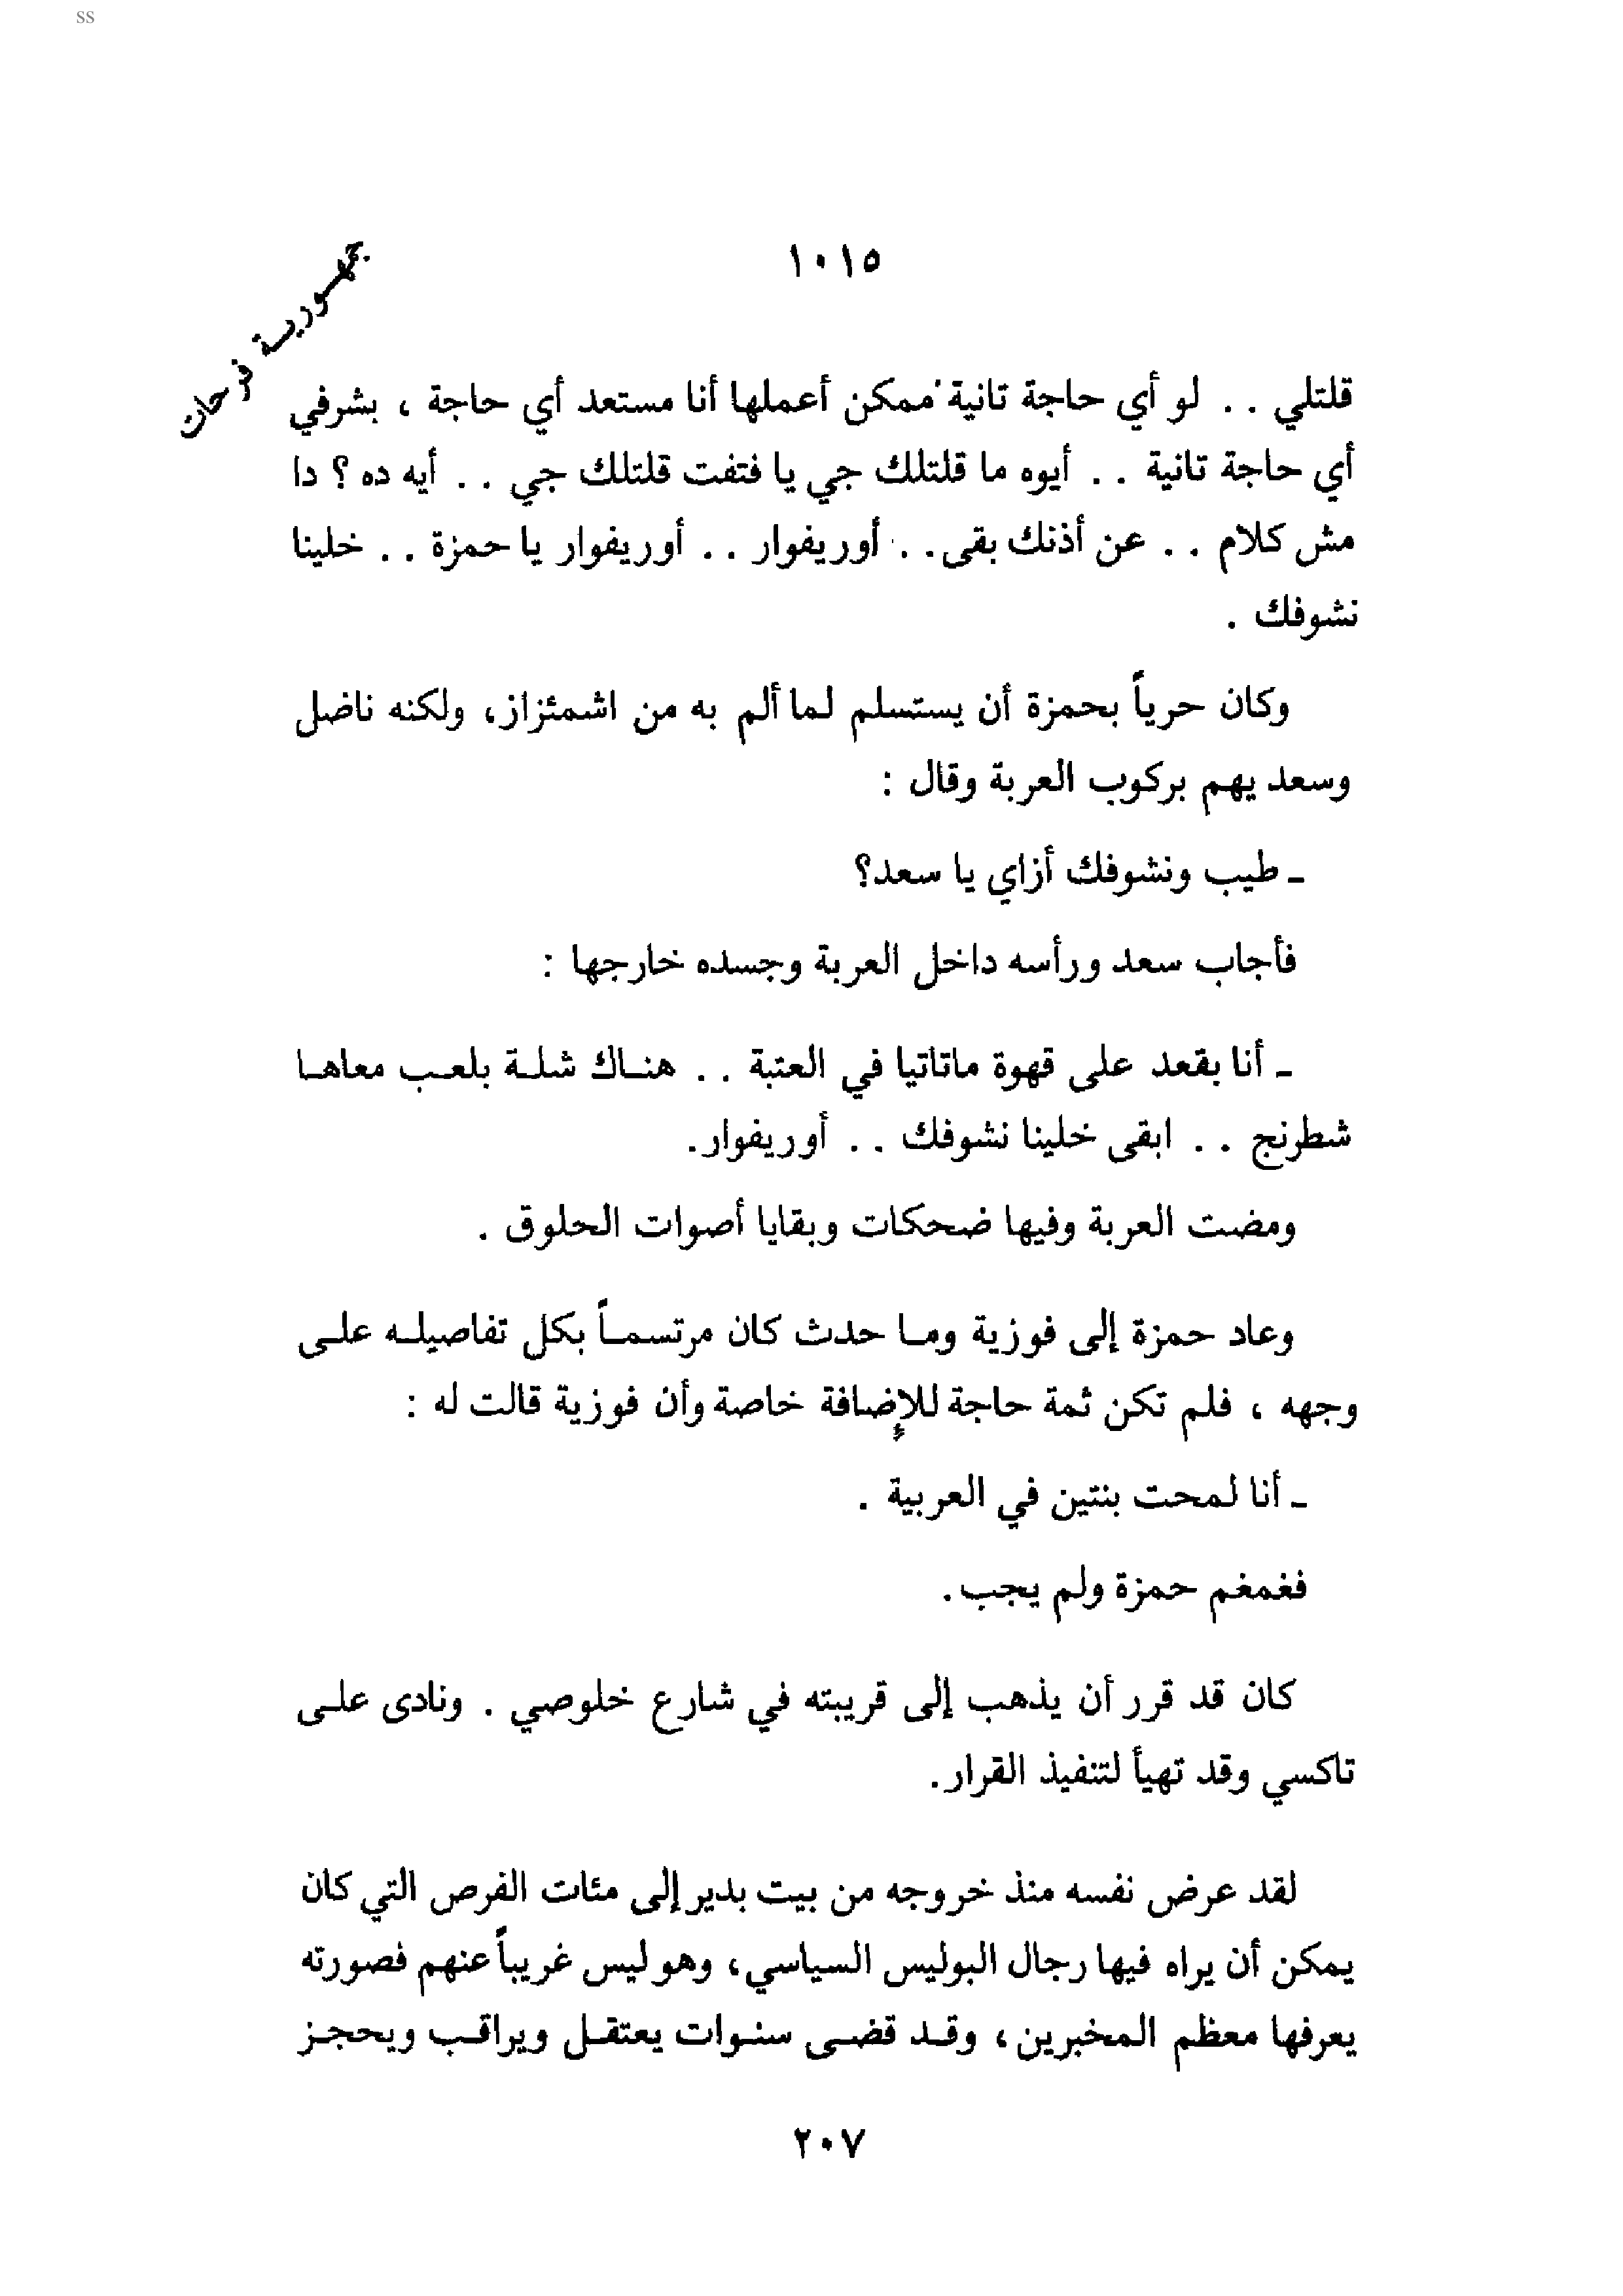 ss
١٠١٥
جمهورية فرحات
قلتلي . . لو أي حاجة تانية ممكن أعملها أنا مستعد أي حاجة ، بشرفي
أي حاجة تانية . . أيوه ما قلتلك جي يا فتفت قلتلك جي . . أيه ده ؟ دا
مش كلام . . عن أذنك بقى . . أوريفوار . . أوريفوار يا حمزة . . خلينا
نشوفك .
وكان حرياً بحمزة أن يستسلم لما ألم به من اشمئزاز، ولكنه ناضل
وسعد يهم بركوب العربة وقال :
ـ طيب ونشوفك أزاي يا سعد؟
فأجاب سعد ورأسه داخل العربة وجسده خارجها :
ـ أنا بقعد على قهوة ماتاتيا في العتبة . . هناك شلة بلعب معاها
شطرنج . . ابقى خلينا نشوفك . . أوريفوار.
ومضت العربة وفيها ضحكات وبقايا أصوات الحلوق .
وعاد حمزة إلى فوزية وما حدث كان مرتسماً بكل تفاصيله على
وجهه ، فلم تكن ثمة حاجة للإضافة خاصة وأن فوزية قالت له :
ـ أنا لمحت بنتين في العربية .
فغمغم حمزة ولم يجب.
كان قد قرر أن يذهب إلى قريبته في شارع خلوصي . ونادى على
تاكسي وقد تهيأ لتنفيذ القرار.
لقد عرض نفسه منذ خروجه من بيت بدير إلى مئات الفرص التي كان
يمكن أن يراه فيها رجال البوليس السياسي، وهو ليس غريباً عنهم فصورته
يعرفها معظم المخبرين، وقد قضى سنوات يعتقل ويراقب ويحجز
٢٠٧